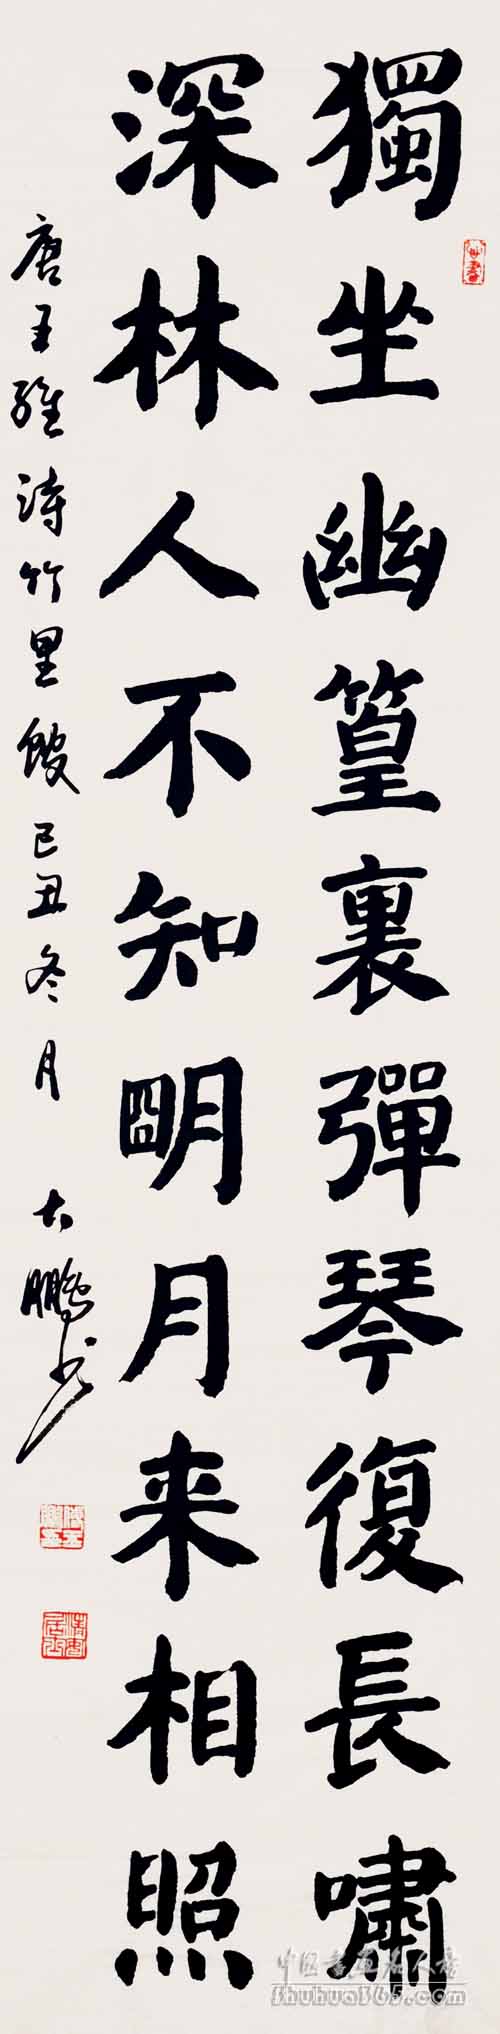 獨坐幽篁裏彈琴復長嘯
深林人不知明月来相照
唐王維詩竹里館己丑冬月
大鵬书
中国书画名人库
shuhua365.com